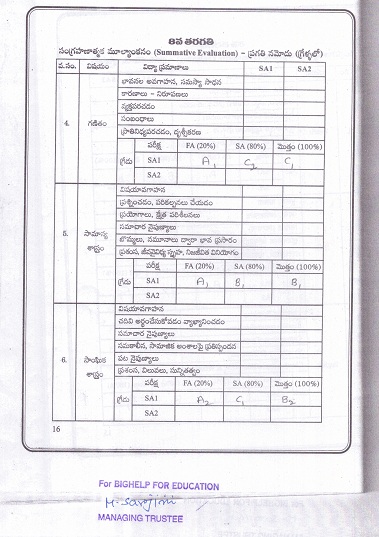 8వ తరగతి
సంగ్రహణాత్మక మూల్యాంకనం (Summative Evaluation) - ప్రగతి నమోదు (గ్రేడ్లలో)
వ.సం. విషయం విద్యా ప్రమాణాలు SA1 SA2
4. గణితం
భావనల అవగాహన, సమస్యా సాధన
కారణాలు - నిరూపణలు
వ్యక్తపరచడం
సంబంధాలు
ప్రాతినిధ్యపరచడం, దృశ్యీకరణ
గ్రేడు పరీక్ష FA (20%) SA (80%) మొత్తం (100%)
SA1 A1 C2 C1
SA2
5. సామాన్య శాస్త్రం
విషయావగాహన
ప్రశ్నించడం, పరికల్పనలు చేయడం
ప్రయోగాలు, క్షేత్ర పరిశీలనలు
సమాచార నైపుణ్యాలు
బొమ్మలు, నమూనాలు ద్వారా భావ ప్రసారం
ప్రశంస, జీవవైవిధ్య స్పృహ, నిజజీవిత వినియోగం
గ్రేడు పరీక్ష FA (20%) SA (80%) మొత్తం (100%)
SA1 A1 B1 B1
SA2
6. సాంఘిక శాస్త్రం
విషయావగాహన
చదివి అర్థంచేసుకోవడం వ్యాఖ్యానించడం
సమాచార నైపుణ్యాలు
సమకాలీన, సామాజిక అంశాలపై ప్రతిస్పందన
పట నైపుణ్యాలు
ప్రశంస, విలువలు, సున్నితత్వం
గ్రేడు పరీక్ష FA (20%) SA (80%) మొత్తం (100%)
SA1 A2 C1 B2
SA2
16
For BIGHELP FOR EDUCATION
M. Sarojini
MANAGING TRUSTEE